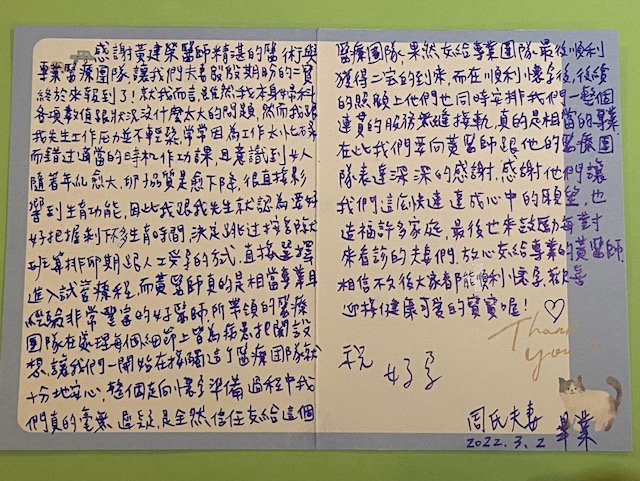 感謝黃建榮醫師精湛的醫術與
專業醫療團隊,讓我們夫妻殷殷期盼的二寶
終於來報到了!就我而言,雖然我本身婦科
各項數值跟狀況沒什麼太大的問題,然而我跟
我先生工作压力並不輕鬆,常常因為工作太忙碌
而錯過適當的時机作功課,且意識到女人
隨著年紀愈大,卵子品質是愈下降,很直接影
響到生育功能,因此我跟我先生就認為要好
好把握利用生育時間,決定跳过按步就
班等排卵期跟人工受孕的方式,直接選擇
進入試管療程,而黃醫師真的是相當專業且
經驗非常豐富的好醫師,所帶領的醫療
團隊在處理每個細節上皆為病患把關設
想,讓我們一開始在接觸這了醫療團隊就
十分地安心,整個走向懷孕準備過程中我
們真的毫無遲疑,是全然信任交給這個
醫療團隊,果然交給專業團隊最後順利
獲得二寶的到來,而在順利懷孕後,後續
的照顧上他們也同時安排我們一整個
連貫的服務無縫接軌,真的是相當的專業
在此我們要向黃醫師跟他的醫療團
隊表達深深的感謝,感謝他們讓
我們這麼快速達成心中的願望,也
造福許多家庭,最後也來鼓勵每對
來看診的夫妻們,放心交給專業的黃醫師
相信不久後大家都能順利懷孕,歡喜
迎接健康可愛的寶寶喔!
Thank
you
祝
好孕
周氏夫妻 畢業
2022.3.2